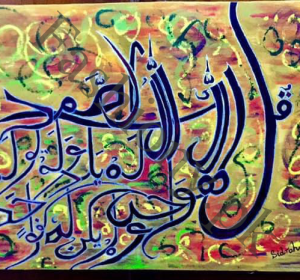 قل هو الله احد
الله الصمد
لم يلد ولم يولد
ولم يكن له كفوا احد